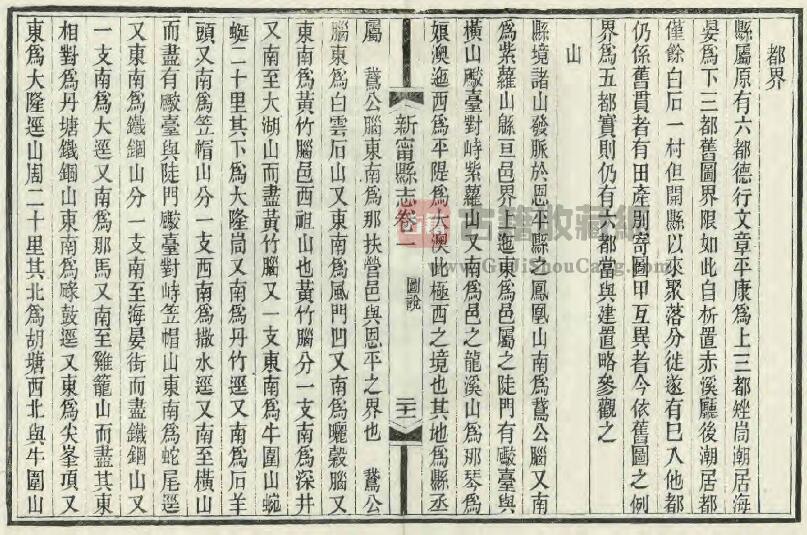 都界
縣屬原有六都德行文章平康爲上三都矬峝潮居海
晏爲下三都舊圖界限如此自析置赤溪廳後潮居都
僅餘白石一村但開縣以來聚落分徙遂有已入他都
仍係舊貫者有田產別寄圖甲互異者今依舊圖之例
界爲五都實則仍有六都當與建置略參觀之
山
縣境諸山發脈於恩平縣之鳳凰山南爲鵞公腦又南
爲紫蘿山緜亘邑界上迤東爲邑屬之陡門有礮臺與
橫山礮臺對峙紫蘿山又南爲邑之龍溪山爲那琴爲
娘澳迤西爲平隄爲大澳此極西之境也其地爲縣丞
新甯縣志卷一
圖說
二十一
屬 鵞公腦東南爲那扶營邑與恩平之界也 鵞公
腦東爲白雲石山又東南爲風門凹又南爲曬穀腦又
東南爲黃竹腦邑西祖山也黃竹腦分一支南爲深井
又南至大湖山而盡黃竹腦又一支東南爲牛圍山蜿
蜒二十里其下爲大隆峝又南爲丹竹逕又南爲石羊
頭又南爲笠帽山分一支西南爲撒水逕又南至橫山
而盡有礮臺與陡門礮臺對峙笠帽山東南爲蛇尾逕
又東南爲鐵錮山分一支南至海晏街而盡鐵錮山又
一支南爲大逕又南爲那馬又南至雞籠山而盡其東
相對爲丹塘鐵錮山東南爲䃔鼓逕又東爲尖峯項又
東爲大隆逕山周二十里其北爲胡塘西北與牛圍山
古籍收藏網
www.GuJiShouCang.com